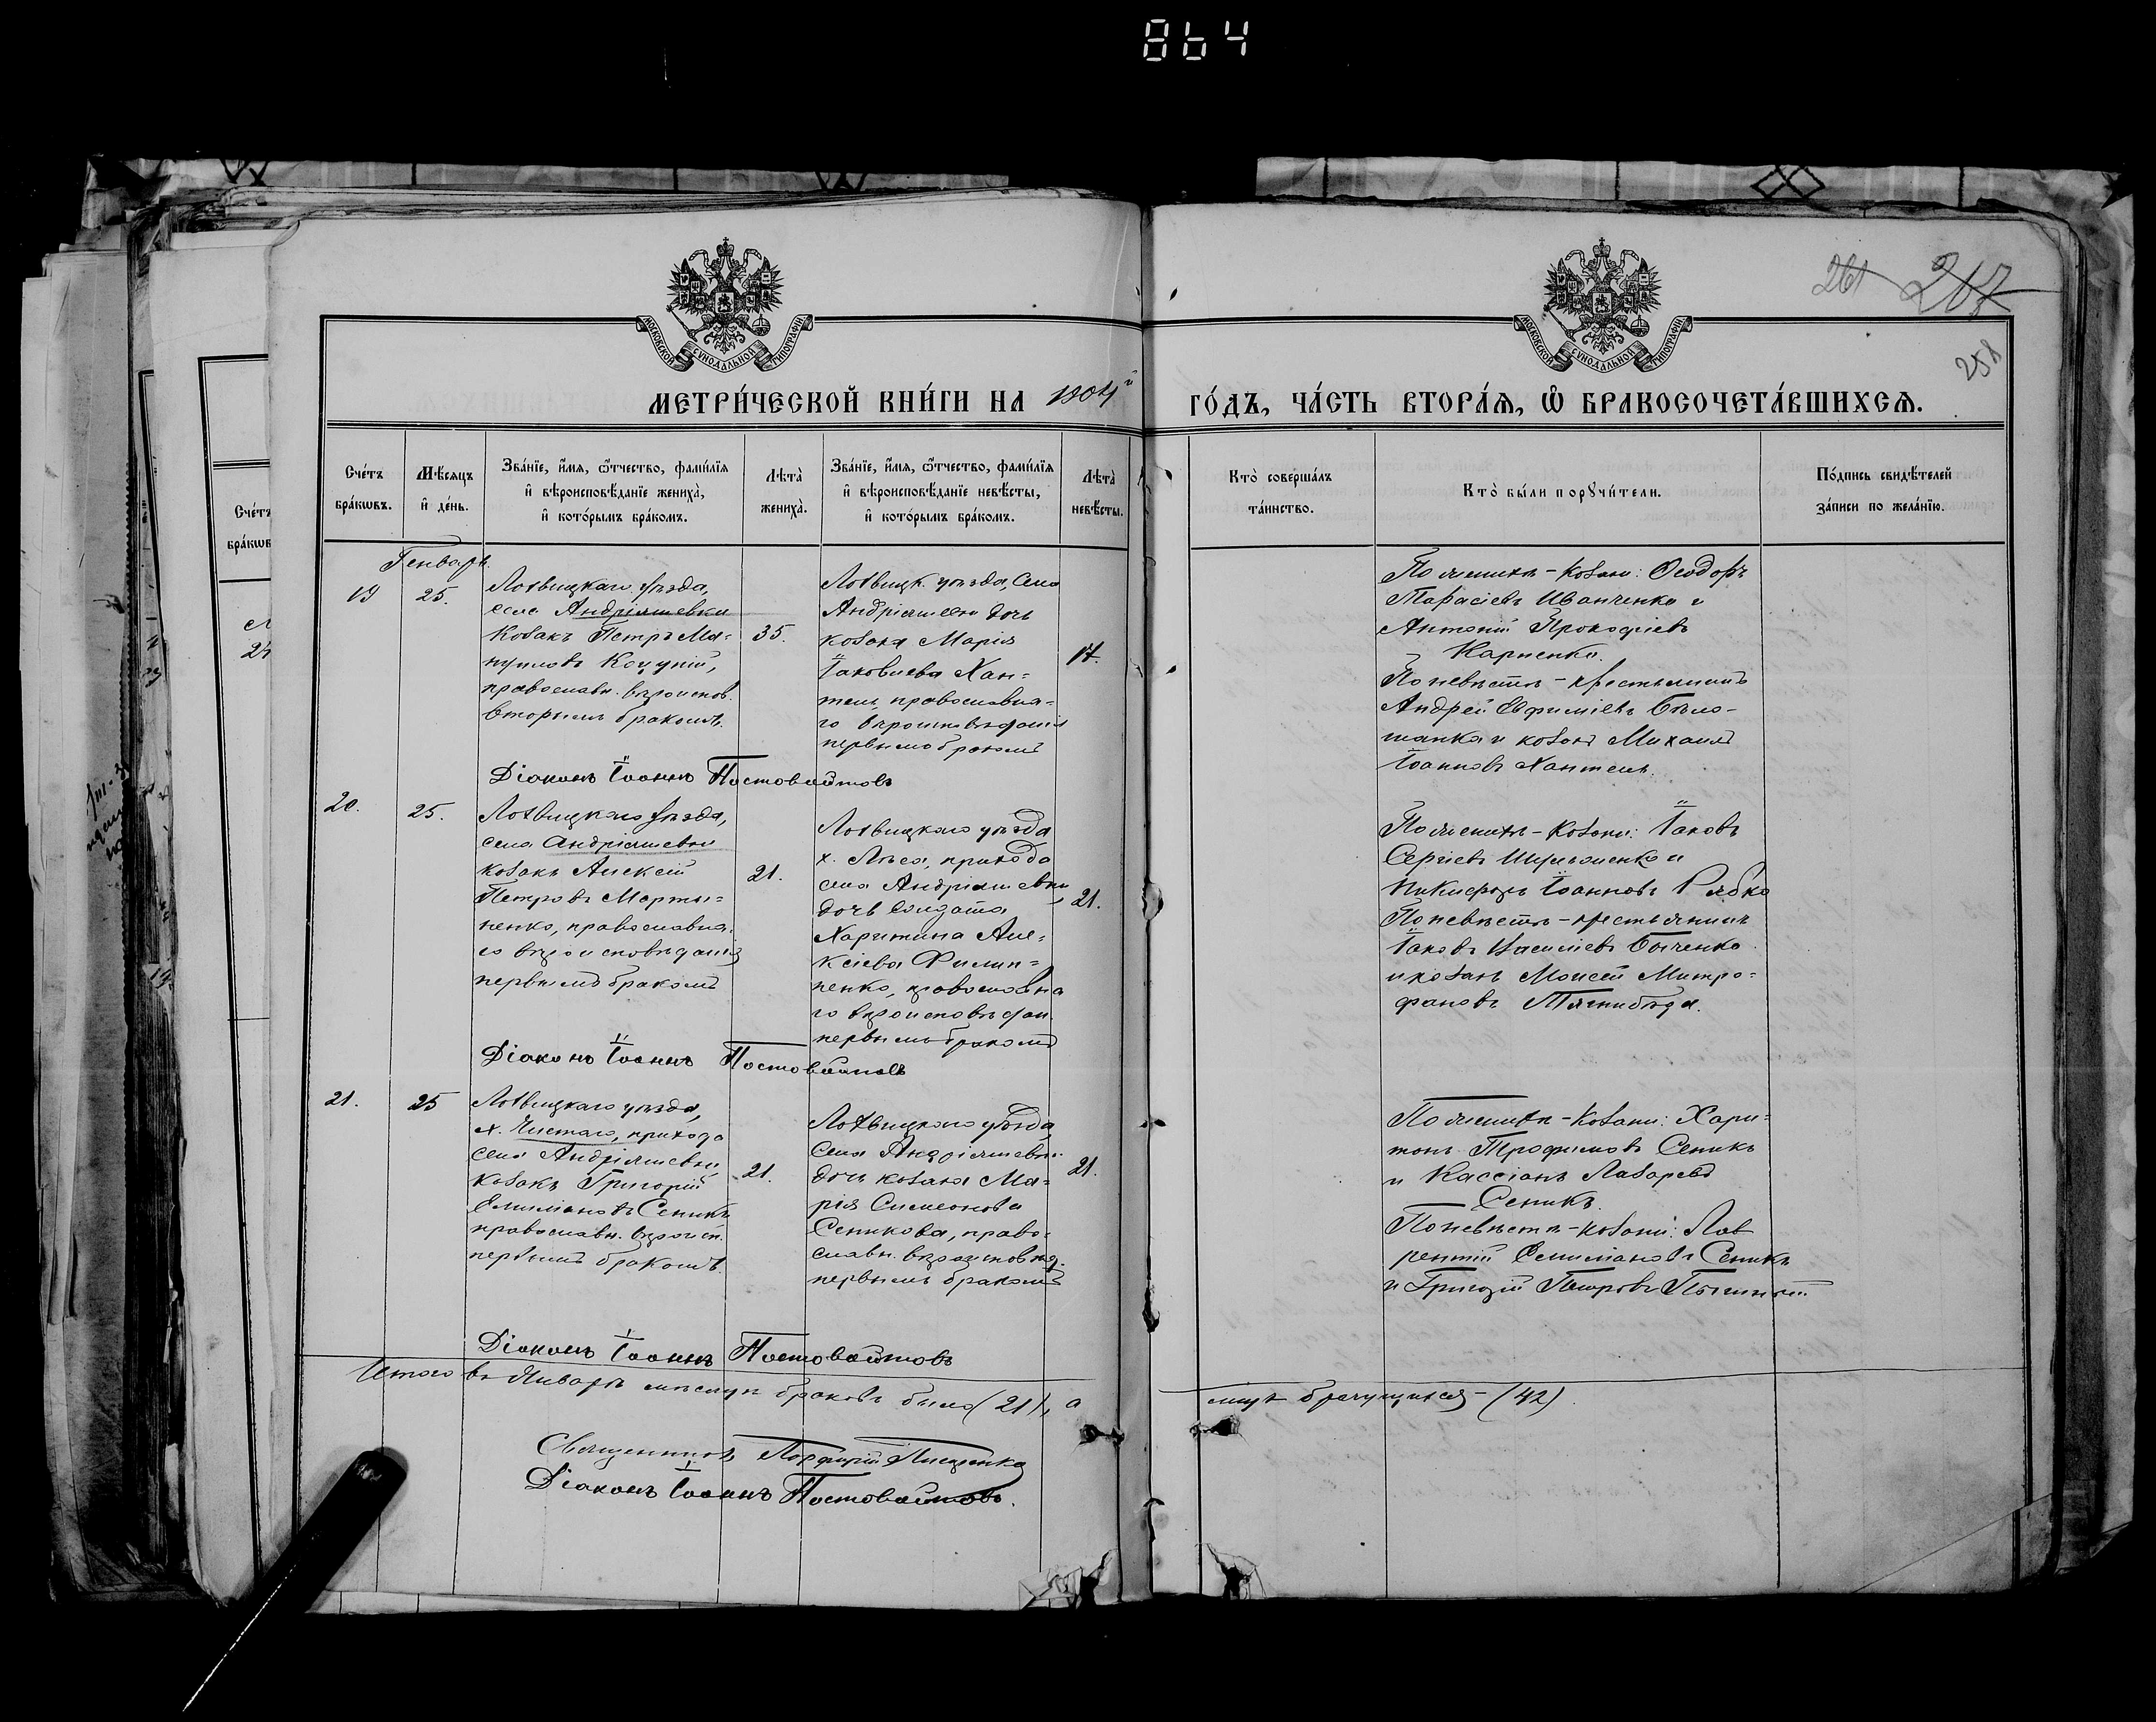 864
МОСКОВСКОЙ СУНОДАЛЬНОЙ ТИПОГРАФІИ
МОСКОВСКОЙ СУНОДАЛЬНОЙ ТИПОГРАФІИ
261 267
258
МЕТРИ́ЧЕСКОЙ КНИ́ГИ НА 1904й ГО́ДЪ, ЧА́СТЬ ВТОРА́Я, Ѡ БРАКОСОЧЕТА́ВШИХСЯ.
Сче́тъ бра́кωвъ.
Мѣ́сяцъ и҆ де́нь.
Зва́нїе, и҆́мя, ѻ҆́тчество, фами́лїя
и҆ вѣроисповѣ́данїе жениха̀,
и҆ кото́рымъ бра́комъ.
Лѣта̀ жениха̀.
Зва́нїе, и҆́мя, ѻ҆́тчество, фами́лїя
и҆ вѣроисповѣ́данїе невѣ́сты,
и҆ кото́рымъ бра́комъ.
Лѣта̀ невѣ́сты.
Кто̀ соверша́лъ
та́инство.
Кто̀ бы́ли порꙋчи́тели.
По́дпись свидѣ́телей
за́писи по жела́нїю.
Генварь.
19
25.
Лохвицкаго уѣзда,
села Андріяшевки
козакъ Петръ Ма-
нуиловъ Коцупій,
православн. вѣроиспов.
вторымъ бракомъ.
35.
Лохвицк. уѣзда, села
Андріяшевки дочь
козака Марія
Іаковлева Хан-
тель, православна-
го вѣроисповѣданія
первымъ бракомъ
17.
По женихѣ - козаки: Ѳеодоръ
Тарасіевъ Иванченко и
Антоній Прокофіевъ
Карпенко.
По невѣстѣ - крестьянинъ
Андрей Евфиміевъ Бѣло-
шапка и козакъ Михаилъ
Іоанновъ Хантель.
Діаконъ Іоаннъ Постовойтовъ
20.
25.
Лохвицкаго уѣзда,
села Андріяшевки
козакъ Алексій
Петровъ Марты-
ненко, православна-
го вѣроисповѣданія
первымъ бракомъ
21.
Лохвицкаго уѣзда
х. Лѣса, прихода
села Андріяшевки
дочь солдата
Харитина Але-
ксіева Филип-
пенко, православна
го вѣроисповѣдан.
первымъ бракомъ
21.
По женихѣ - козаки: Іаковъ
Сергіевъ и
Никифоръ Іоанновъ Рябко
По невѣстѣ - крестьянинъ
Іаковъ Василіевъ Быченко
и козакъ Моисей Митро-
фановъ Тягнибѣда.
Діаконъ Іоаннъ Постовойтовъ
21.
25
Лохвицкаго уѣзда,
х. Чистаго, прихода
села Андріяшевки,
козакъ Григорій
Емиліановъ Сеникъ
православн. вѣроисп.
первымъ бракомъ.
21.
Лохвицкаго уѣзда,
села Андріяшевки
дочь козака Ма-
рія Симеонова
Сеникова, право-
славн. вѣроисповѣд.
первымъ бракомъ
21.
По женихѣ - козаки: Хари-
тонъ Трофимовъ Сеникъ
и Кассіанъ Лазаревъ
Сеникъ.
По невѣстѣ - козаки: Лав
рентій Емиліановъ Сеникъ
и Григорій Петровъ
Діаконъ Іоаннъ Постовойтовъ
Итого въ Январѣ мѣсяцѣ браковъ было (21), а лицъ брачущихся - (42).
Священникъ Порфирій
Діаконъ Іоаннъ Постовойтовъ.